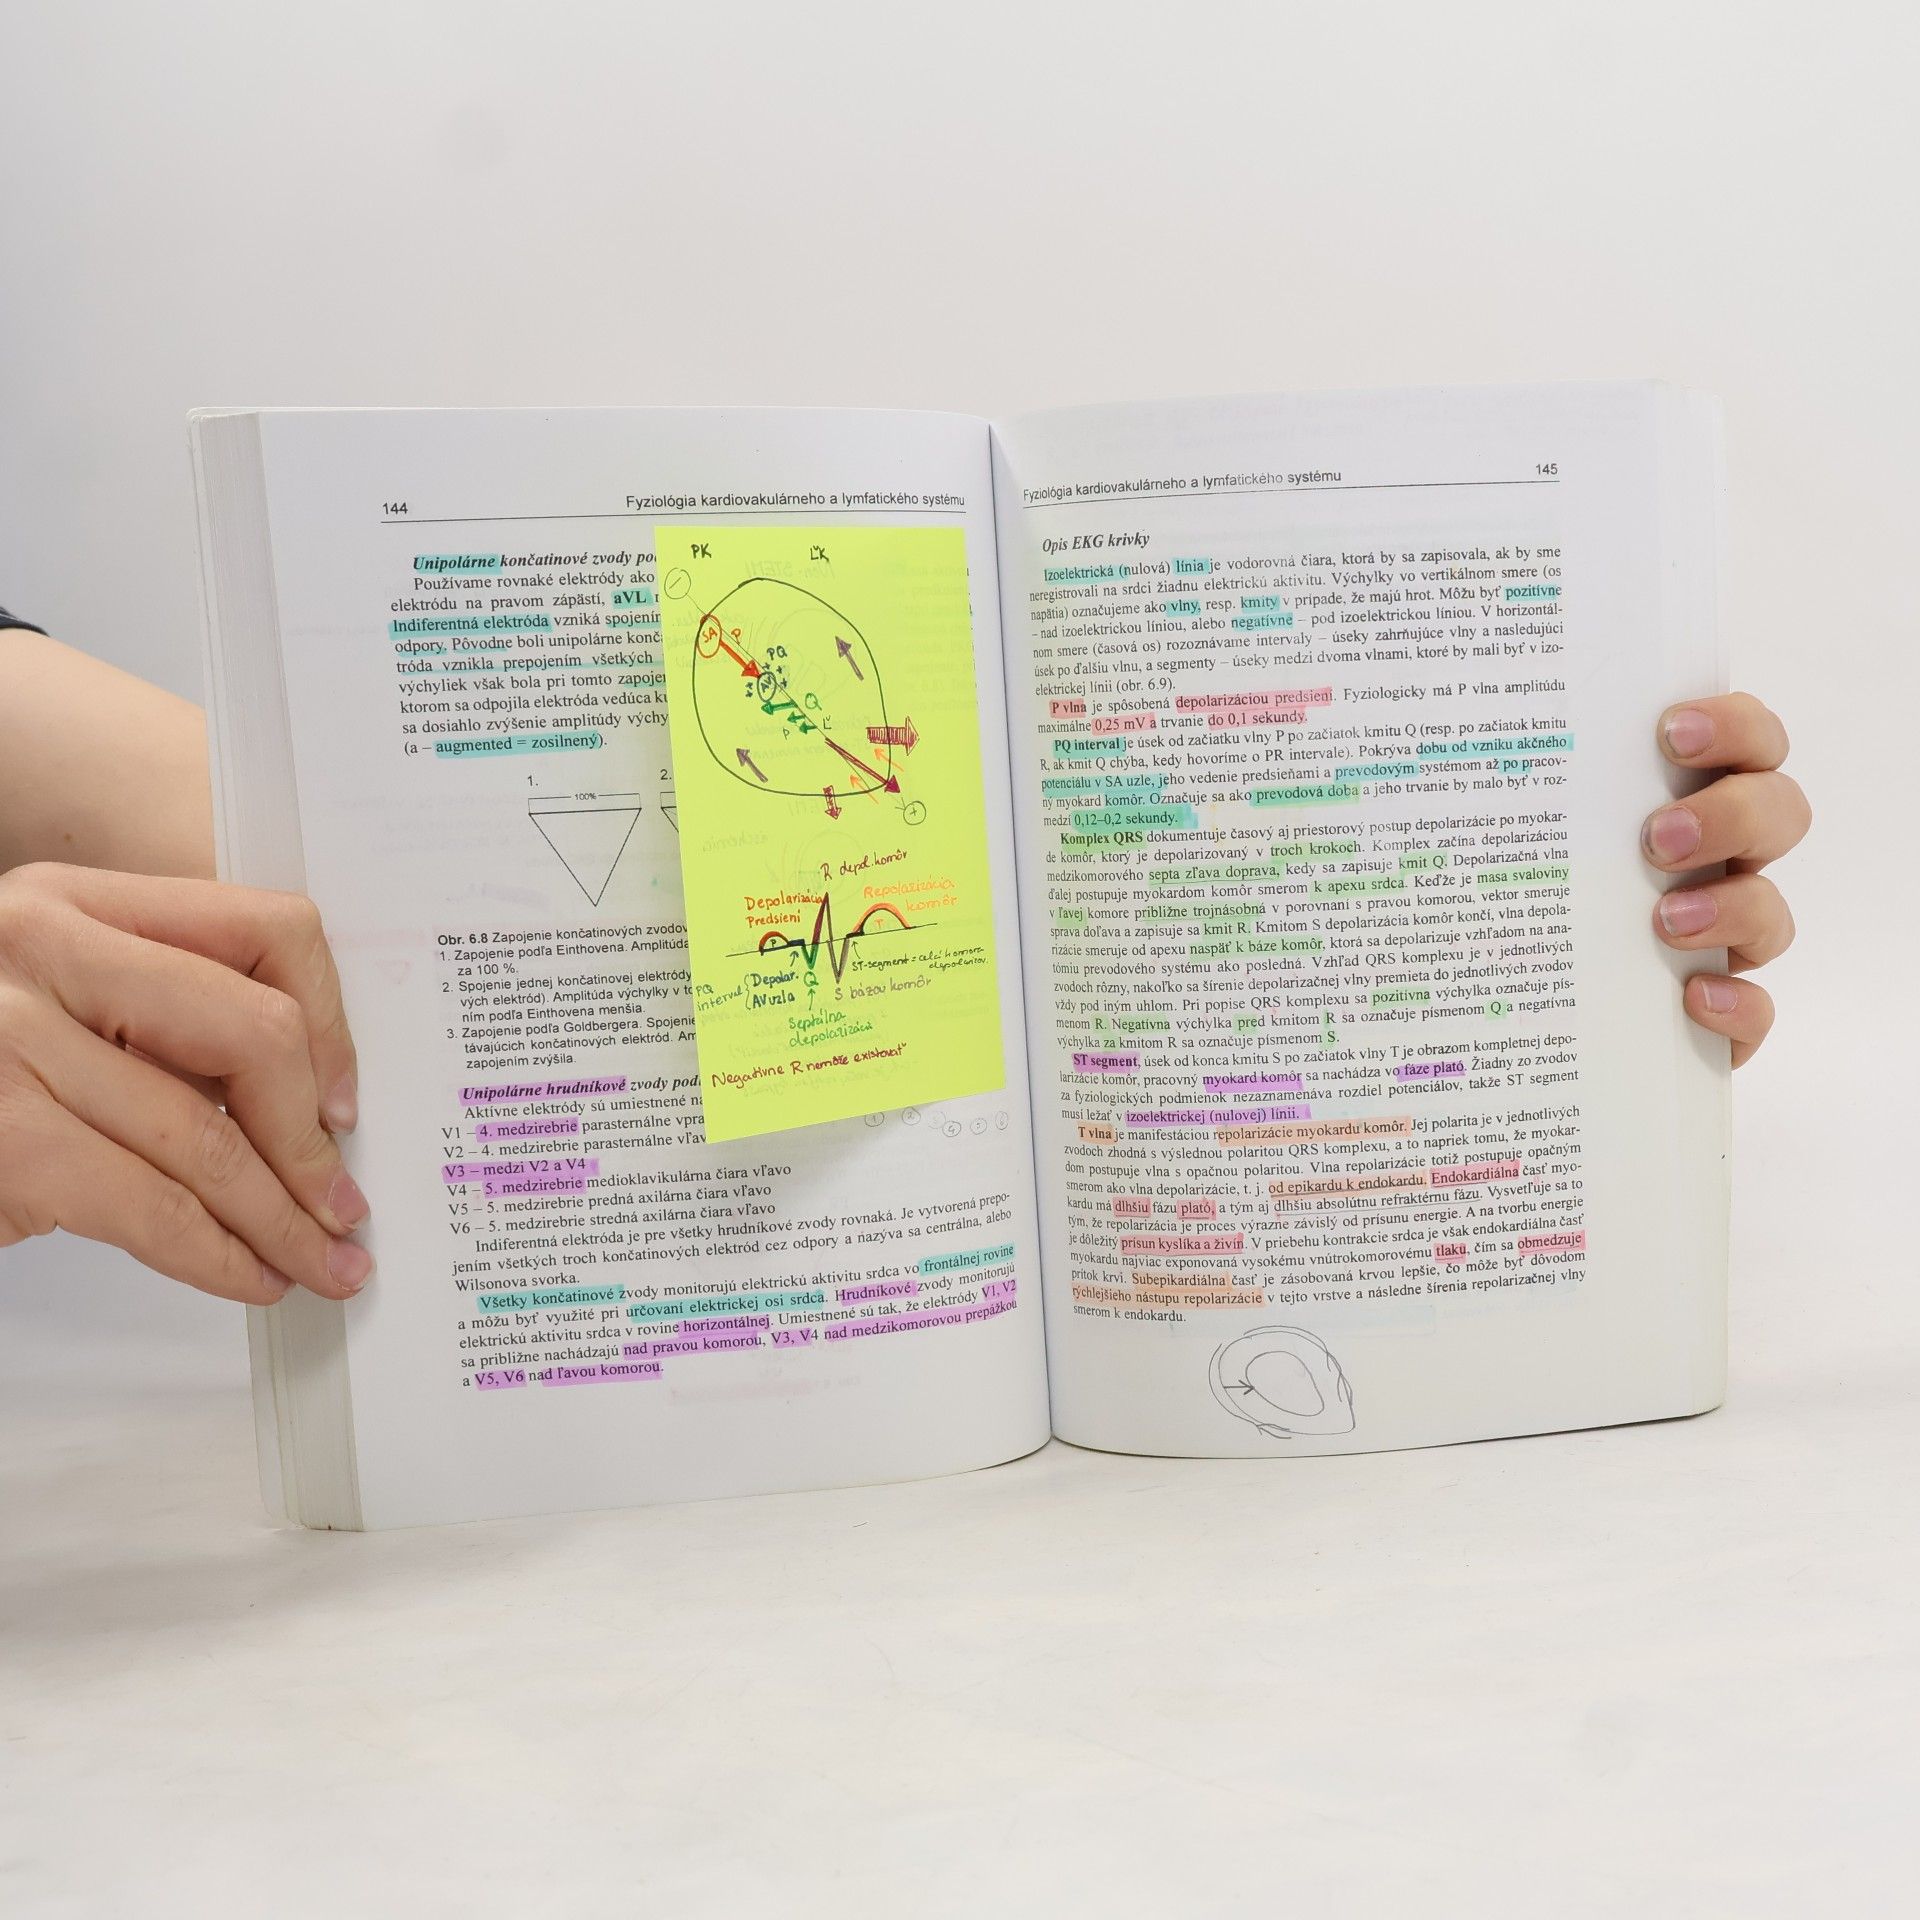 144
Fyziológia kardiovakulárneho a lymfatického systému
Unipolárne končatinové zvody
Používame rovnaké elektródy ako
elektródu na pravom zápästí, aVL
Indiferentná elektróda vzniká spojením
odpory. Pôvodne boli unipolárne
tróda vznikla prepojením všetkých
výchyliek však bola pri tomto
ktorom sa odpojila elektróda vedúca
sa dosiahlo zvýšenie amplitúdy
(a – augmented = zosilnený).
1.
2.
100%
Obr. 6.8 Zapojenie končatinových zvodov
1. Zapojenie podľa Einthovena. Amplitúda
za 100 %.
2. Spojenie jednej končatinovej elektródy
vých elektród). Amplitúda výchylky v
ním podľa Einthovena menšia.
3. Zapojenie podľa Goldbergera. Spojenie
távajúcich končatinových elektród.
zapojením zvýšila.
Unipolárne hrudníkové zvody
Aktívne elektródy sú umiestnené
V1 – 4. medzirebrie parasternálne
V2 – 4. medzirebrie parasternálne vľavo
V3 – medzi V2 a V4
V4 – 5. medzirebrie medioklavikulárna čiara vľavo
V5 – 5. medzirebrie predná axilárna čiara vľavo
V6 – 5. medzirebrie stredná axilárna čiara vľavo
Indiferentná elektróda je pre všetky hrudníkové zvody rovnaká. Je vytvorená prepo-
jením všetkých troch končatinových elektród cez odpory a nazýva sa centrálna, alebo
Wilsonova svorka.
Všetky končatinové zvody monitorujú elektrickú aktivitu srdca vo frontálnej rovine
a môžu byť využité pri určovaní elektrickej osi srdca. Hrudníkové zvody monitorujú
elektrickú aktivitu srdca v rovine horizontálnej. Umiestnené sú tak, že elektródy V1, V2
sa približne nachádzajú nad pravou komorou, V3, V4 nad medzikomorovou prepážkou
a V5, V6 nad ľavou komorou.
PK
ĽK
SA
P
PQ
AV
Q
P
Ľ
R depol. komôr
Depolarizácia
Predsiení
Repolarizácia
komôr
P
T
ST-segment = celá komora
depolarizov.
PQ
interval
Depolar.
AV uzla
Q
S bázou komôr
Septálna
depolarizácia
Negatívne R nemôže existovať
Fyziológia kardiovakulárneho a lymfatického systému
145
Opis EKG krivky
Izoelektrická (nulová) línia je vodorovná čiara, ktorá by sa zapisovala, ak by sme
neregistrovali na srdci žiadnu elektrickú aktivitu. Výchylky vo vertikálnom smere (os
napätia) označujeme ako vlny, resp. kmity v prípade, že majú hrot. Môžu byť pozitívne
– nad izoelektrickou líniou, alebo negatívne – pod izoelektrickou líniou. V horizontál-
nom smere (časová os) rozoznávame intervaly – úseky zahrňujúce vlny a nasledujúci
úsek po ďalšiu vlnu, a segmenty – úseky medzi dvoma vlnami, ktoré by mali byť v izo-
elektrickej línii (obr. 6.9).
P vlna je spôsobená depolarizáciou predsiení. Fyziologicky má P vlna amplitúdu
maximálne 0,25 mV a trvanie do 0,1 sekundy.
PQ interval je úsek od začiatku vlny P po začiatok kmitu Q (resp. po začiatok kmitu
R, ak kmit Q chýba, kedy hovoríme o PR intervale). Pokrýva dobu od vzniku akčného
potenciálu v SA uzle, jeho vedenie predsieňami a prevodovým systémom až po pracov-
ný myokard komôr. Označuje sa ako prevodová doba a jeho trvanie by malo byť v roz-
medzí 0,12–0,2 sekundy.
Komplex QRS dokumentuje časový aj priestorový postup depolarizácie po myokar-
de komôr, ktorý je depolarizovaný v troch krokoch. Komplex začína depolarizáciou
medzikomorového septa zľava doprava, kedy sa zapisuje kmit Q. Depolarizačná vlna
ďalej postupuje myokardom komôr smerom k apexu srdca. Keďže je masa svaloviny
v ľavej komore približne trojnásobná v porovnaní s pravou komorou, vektor smeruje
sprava doľava a zapisuje sa kmit R. Kmitom S depolarizácia komôr končí, vlna depola-
rizácie smeruje od apexu naspäť k báze komôr, ktorá sa depolarizuje vzhľadom na ana-
tómiu prevodového systému ako posledná. Vzhľad QRS komplexu je v jednotlivých
zvodoch rôzny, nakoľko sa šírenie depolarizačnej vlny premieta do jednotlivých zvodov
vždy pod iným uhlom. Pri popise QRS komplexu sa pozitívna výchylka označuje pís-
menom R. Negatívna výchylka pred kmitom R sa označuje písmenom Q a negatívna
výchylka za kmitom R sa označuje písmenom S.
ST segment, úsek od konca kmitu S po začiatok vlny T je obrazom kompletnej depo-
larizácie komôr, pracovný myokard komôr sa nachádza vo fáze plató. Žiadny zo zvodov
za fyziologických podmienok nezaznamenáva rozdiel potenciálov, takže ST segment
musí ležať v izoelektrickej (nulovej) línii.
T vlna je manifestáciou repolarizácie myokardu komôr. Jej polarita je v jednotlivých
zvodoch zhodná s výslednou polaritou QRS komplexu, a to napriek tomu, že myokar-
dom postupuje vlna s opačnou polaritou. Vlna repolarizácie totiž postupuje opačným
smerom ako vlna depolarizácie, t. j. od epikardu k endokardu. Endokardiálna časť myo-
kardu má dlhšiu fázu plató, a tým aj dlhšiu absolútnu refraktérnu fázu. Vysvetľuje sa to
tým, že repolarizácia je proces výrazne závislý od prísunu energie. A na tvorbu energie
je dôležitý prísun kyslíka a živín. V priebehu kontrakcie srdca je však endokardiálna časť
myokardu najviac exponovaná vysokému vnútrokomorovému tlaku, čím sa obmedzuje
prítok krvi. Subepikardiálna časť je zásobovaná krvou lepšie, čo môže byť dôvodom
rýchlejšieho nástupu repolarizácie v tejto vrstve a následne šírenia repolarizačnej vlny
smerom k endokardu.